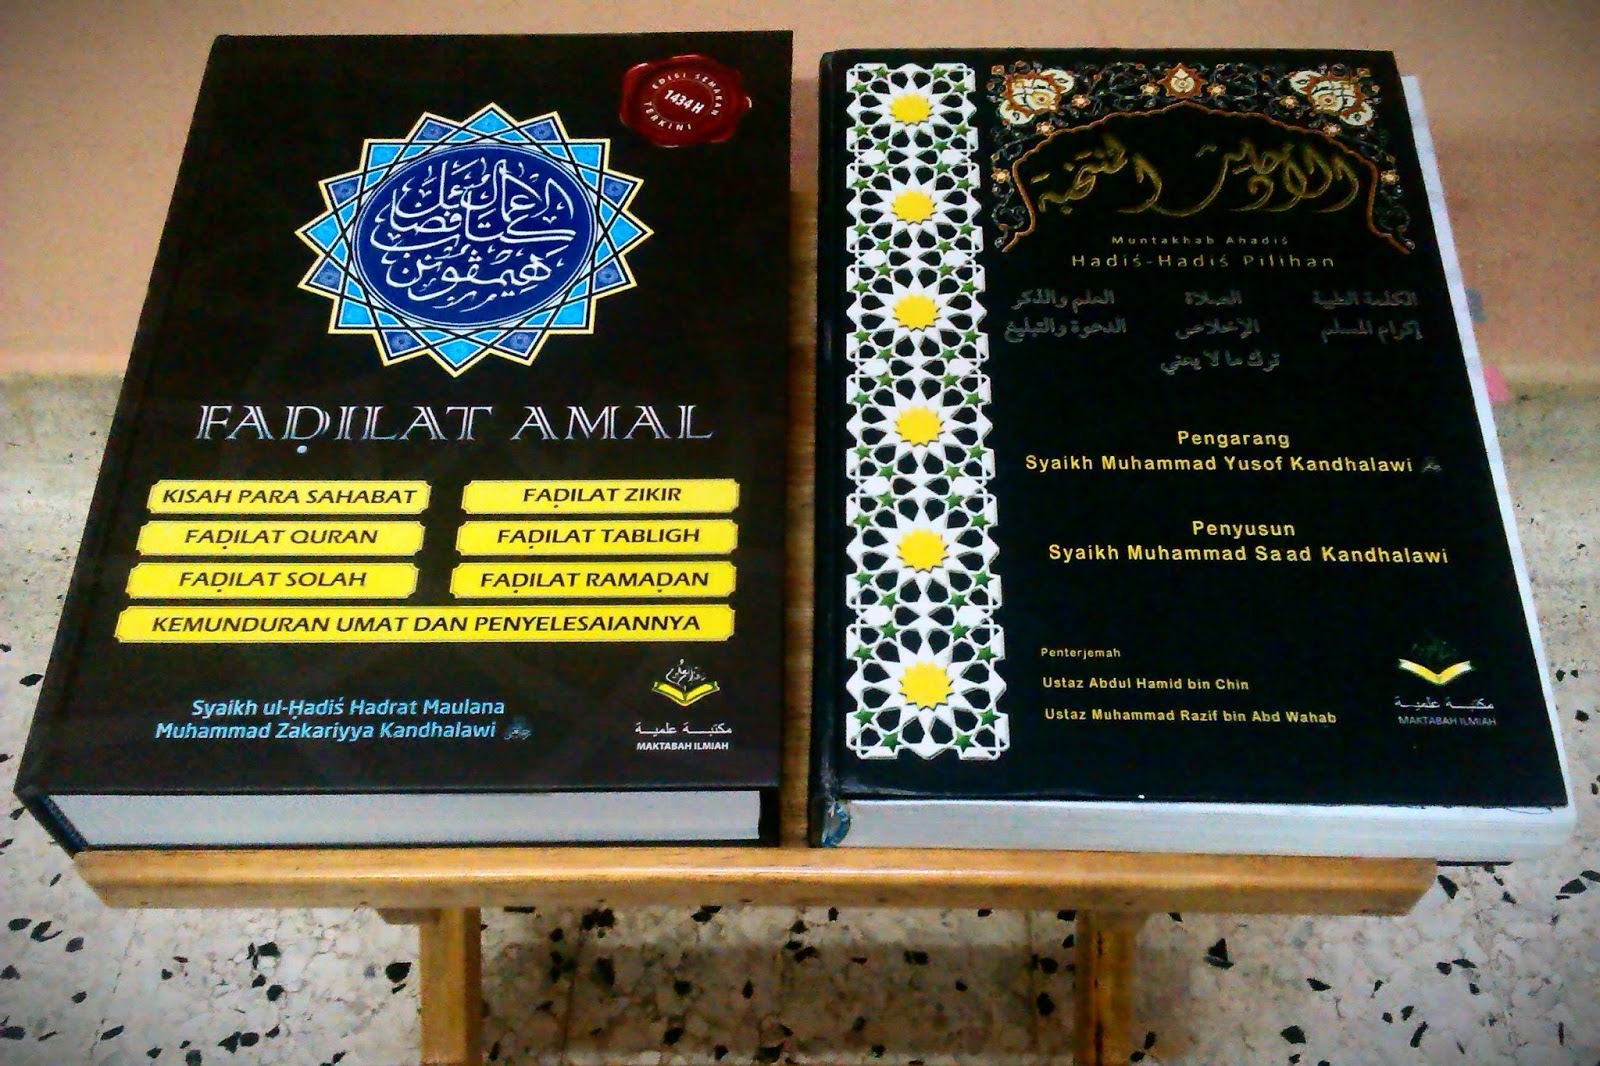 EDISI SEMAKAN
1434 H
TERKINI
كتاب فضائل الاعمال
هيمڤونن
FAḌILAT AMAL
KISAH PARA SAHABAT
FAḌILAT ZIKIR
FAḌILAT QURAN
FAḌILAT TABLIGH
FAḌILAT SOLAH
FAḌILAT RAMAḌAN
KEMUNDURAN UMAT DAN PENYELESAIANNYA
Syaikh ul-Ḥadiś Hadrat Maulana
Muhammad Zakariyya Kandhalawi
مكتبة علمية
MAKTABAH ILMIAH
الأحاديث المنتخبة
Muntakhab Ahadiś
Hadiś-Hadiś Pilihan
الكلمة الطيبة الصلاة العلم والذكر
إكرام المسلم الإخلاص الدعوة والتبليغ
ترك ما لا يعني
Pengarang
Syaikh Muhammad Yusof Kandhalawi
Penyusun
Syaikh Muhammad Sa ad Kandhalawi
Penterjemah
Ustaz Abdul Hamid bin Chin
Ustaz Muhammad Razif bin Abd Wahab
مكتبة علمية
MAKTABAH ILMIAH